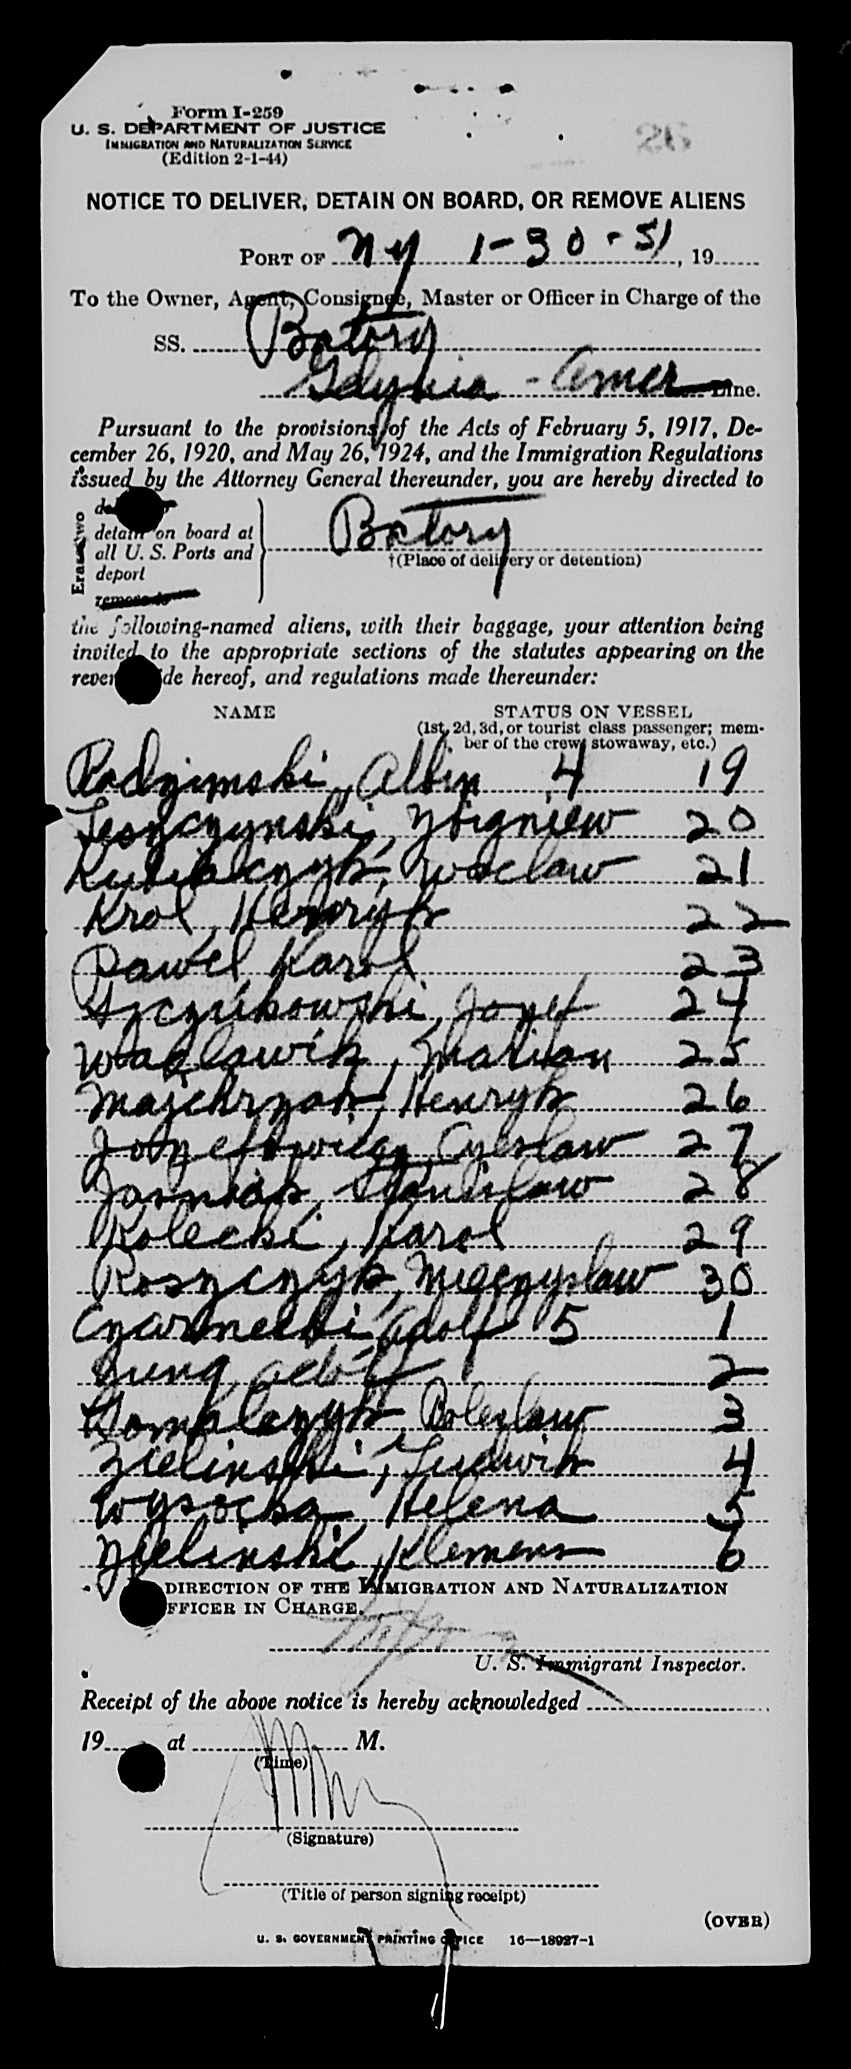 Form I-259
U. S. DEPARTMENT OF JUSTICE
IMMIGRATION AND NATURALIZATION SERVICE
(Edition 2-1-44)
26
NOTICE TO DELIVER, DETAIN ON BOARD, OR REMOVE ALIENS
PORT OF NY 1-30-51, 19
To the Owner, Agent, Consignee, Master or Officer in Charge of the
SS. Batory
Gdynia - Amer Line.
Pursuant to the provisions of the Acts of February 5, 1917, De-
cember 26, 1920, and May 26, 1924, and the Immigration Regulations
issued by the Attorney General thereunder, you are hereby directed to
Erase two
detain on board at
all U. S. Ports and
deport
remove to
Batory
†(Place of delivery or detention)
the following-named aliens, with their baggage, your attention being
invited to the appropriate sections of the statutes appearing on the
hereof, and regulations made thereunder:
NAME
STATUS ON VESSEL
(1st, 2d, 3d, or tourist class passenger; mem-
ber of the crew, stowaway, etc.)
Radzimski, Albin 4 19
Leszczynski, Zbigniew 20
Waclaw 21
Krol, Henryk 22
Pawel, Karol 23
Szczukowski, Jozef 24
Waclawik, Marian 25
Majchrzak, Henryk 26
Czeslaw 27
Jasniak, Stanislaw 28
Kolecki, Karol 29
Roszczyk, Mieczyslaw 30
Czarnecki, Adolf 5 1
Jung, Adolf 2
Boleslaw 3
Zielinski, Ludwik 4
Wysocka, Helena 5
Zielinski, Klemens 6
DIRECTION OF THE IMMIGRATION AND NATURALIZATION
OFFICER IN CHARGE.
U. S. Immigrant Inspector.
Receipt of the above notice is hereby acknowledged
19 at M.
(Time)
(Signature)
(Title of person signing receipt)
(OVER)
U. S. GOVERNMENT PRINTING OFFICE 16—18927-1